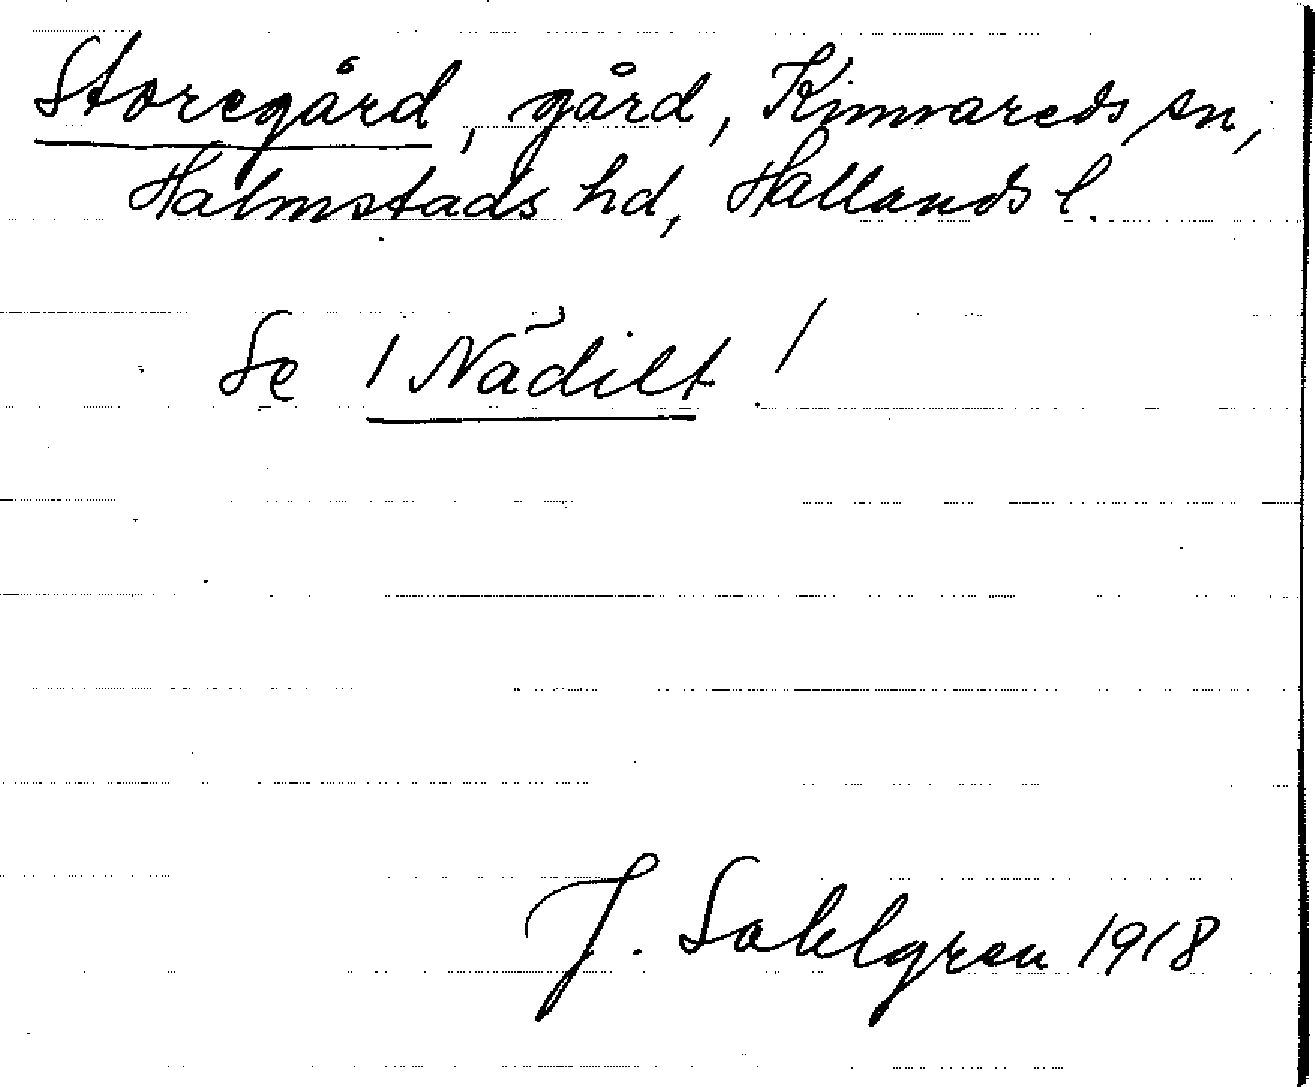 Storegård, gård, Kinnareds sn,
Halmstads hd, Hallands l.
Se 1 Nädilt!
J. Sahlgren 1918